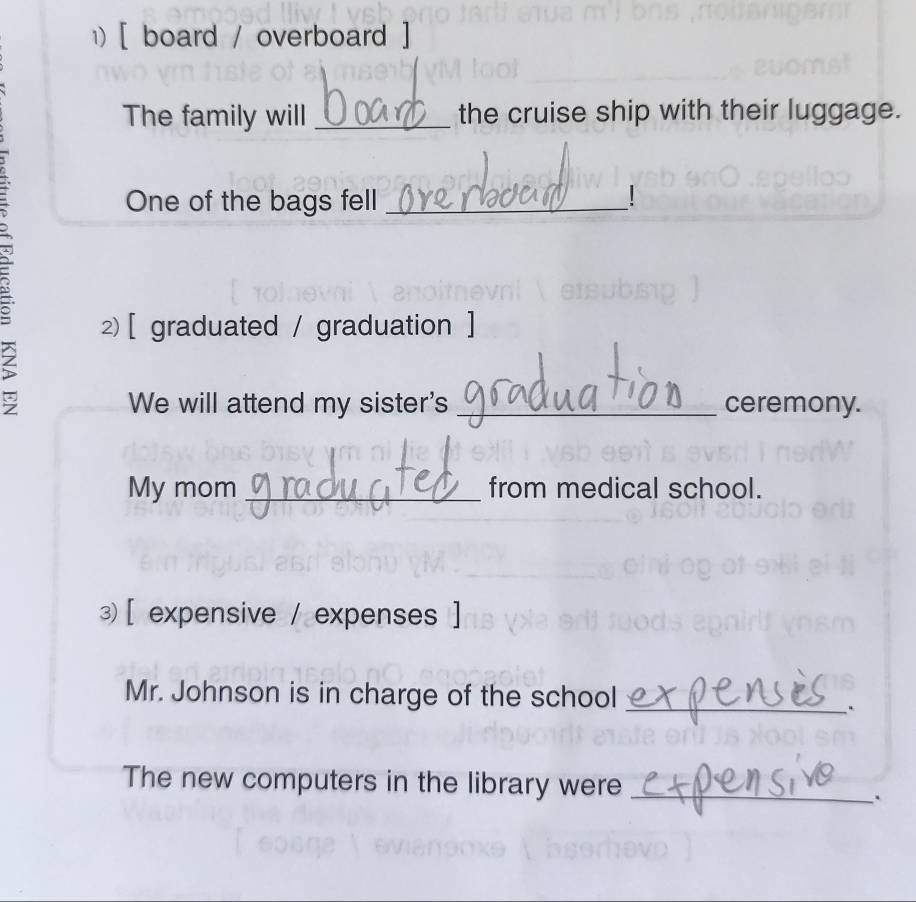 1) [ board / overboard ]
The family will board the cruise ship with their luggage.
One of the bags fell overboard!
2) [ graduated / graduation ]
We will attend my sister's graduation ceremony.
My mom graduated from medical school.
3) [ expensive / expenses ]
Mr. Johnson is in charge of the school expenses.
The new computers in the library were expensive.
Institute of Education KNA EN